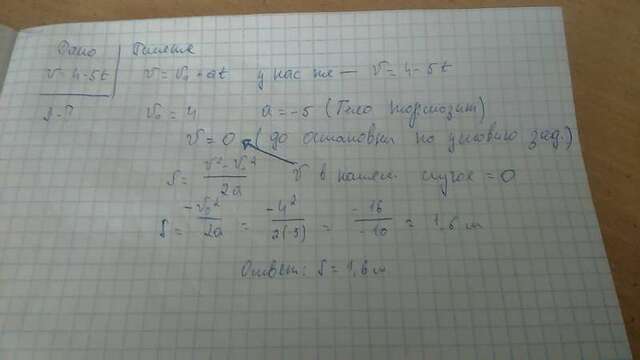 Дано Решение
v = 4-5t v = v₀ + at у нас же — v = 4-5t
S-? v₀ = 4 a = -5 (Тело тормозит)
v = 0 (до остановки по условию зад.)
S = (v² - v₀²)/2a v в нашем случае = 0
S = -v₀²/2a = -4²/2(-5) = -16/-10 = 1,6 м
Ответ: S = 1,6 м